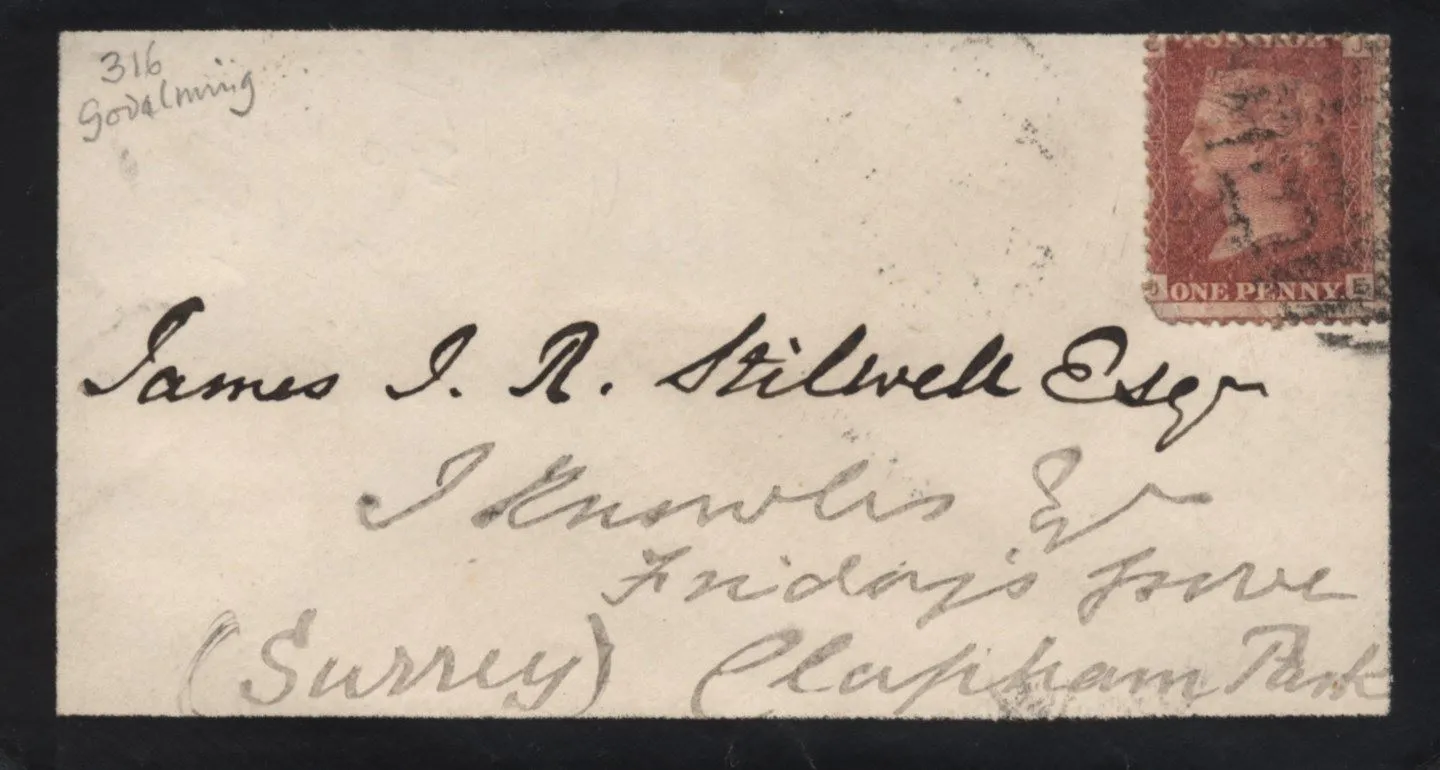 316
Godalming
J
ONE PENNY.
E
James J. R. Stilwell Esqr
J Knowles Esqr
Friday's Grove
(Surrey) Clapham Park